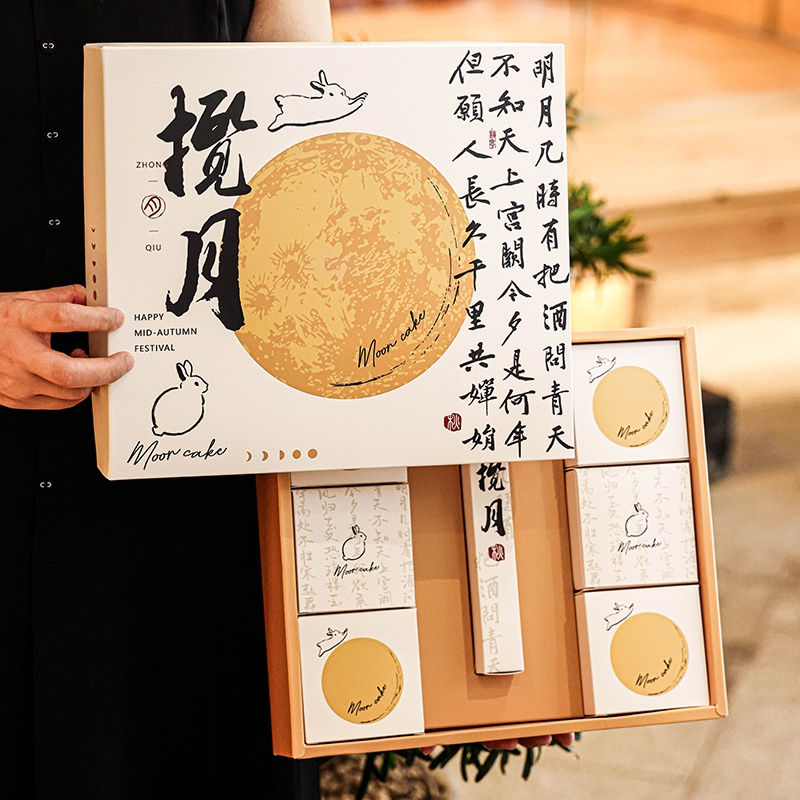 揽月
ZHON
QIU
HAPPY
MID-AUTUMN
FESTIVAL
Moon cake
Moon cake
明月几時有把酒問青天
不知天上宮闕今夕是何年
但願人長久千里共嬋娟
秋
Moon cake
Moon cake
Moon cake
揽月
秋
酒問青天
Moon cake
Moon cake